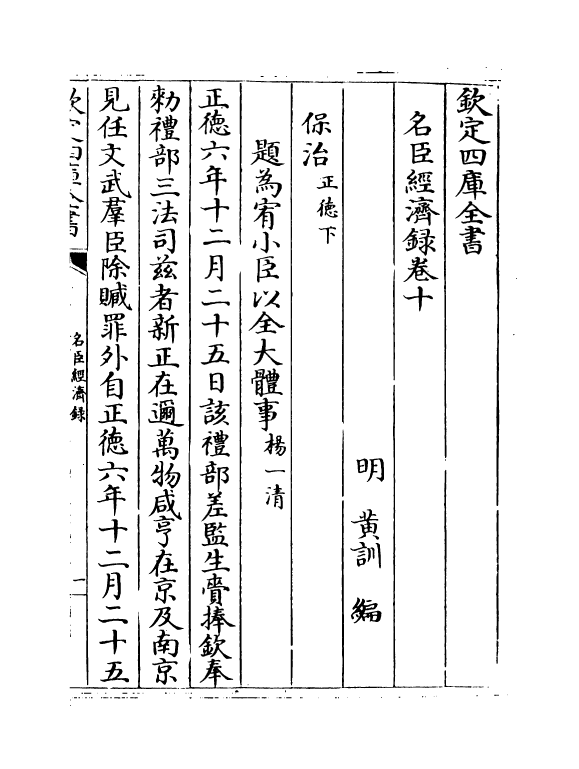 欽定四庫全書
名臣經濟録卷十
明 黃訓 編
保治 正德下
題為宥小臣以全大體事 楊一清
正德六年十二月二十五日該禮部差監生賫捧欽奉
勅禮部三法司兹者新正在邇萬物咸亨在京及南京
見任文武羣臣除贓罪外自正德六年十二月二十五
欽定四庫全書
名臣經濟録
一